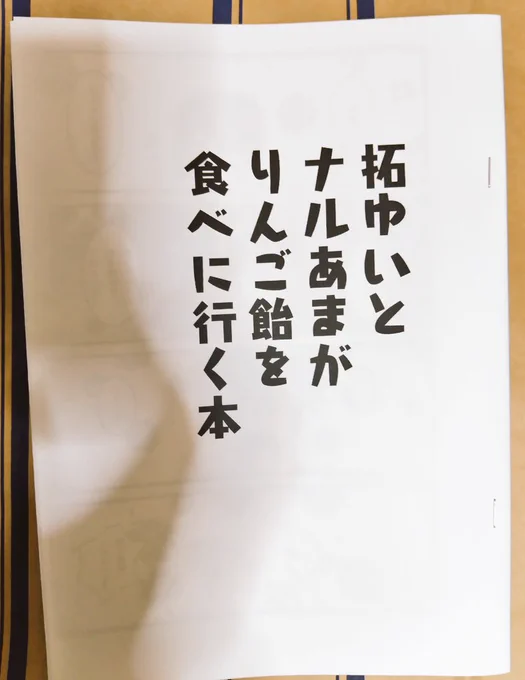 拓ゆいと
ナルあまが
りんご飴を
食べに行く本